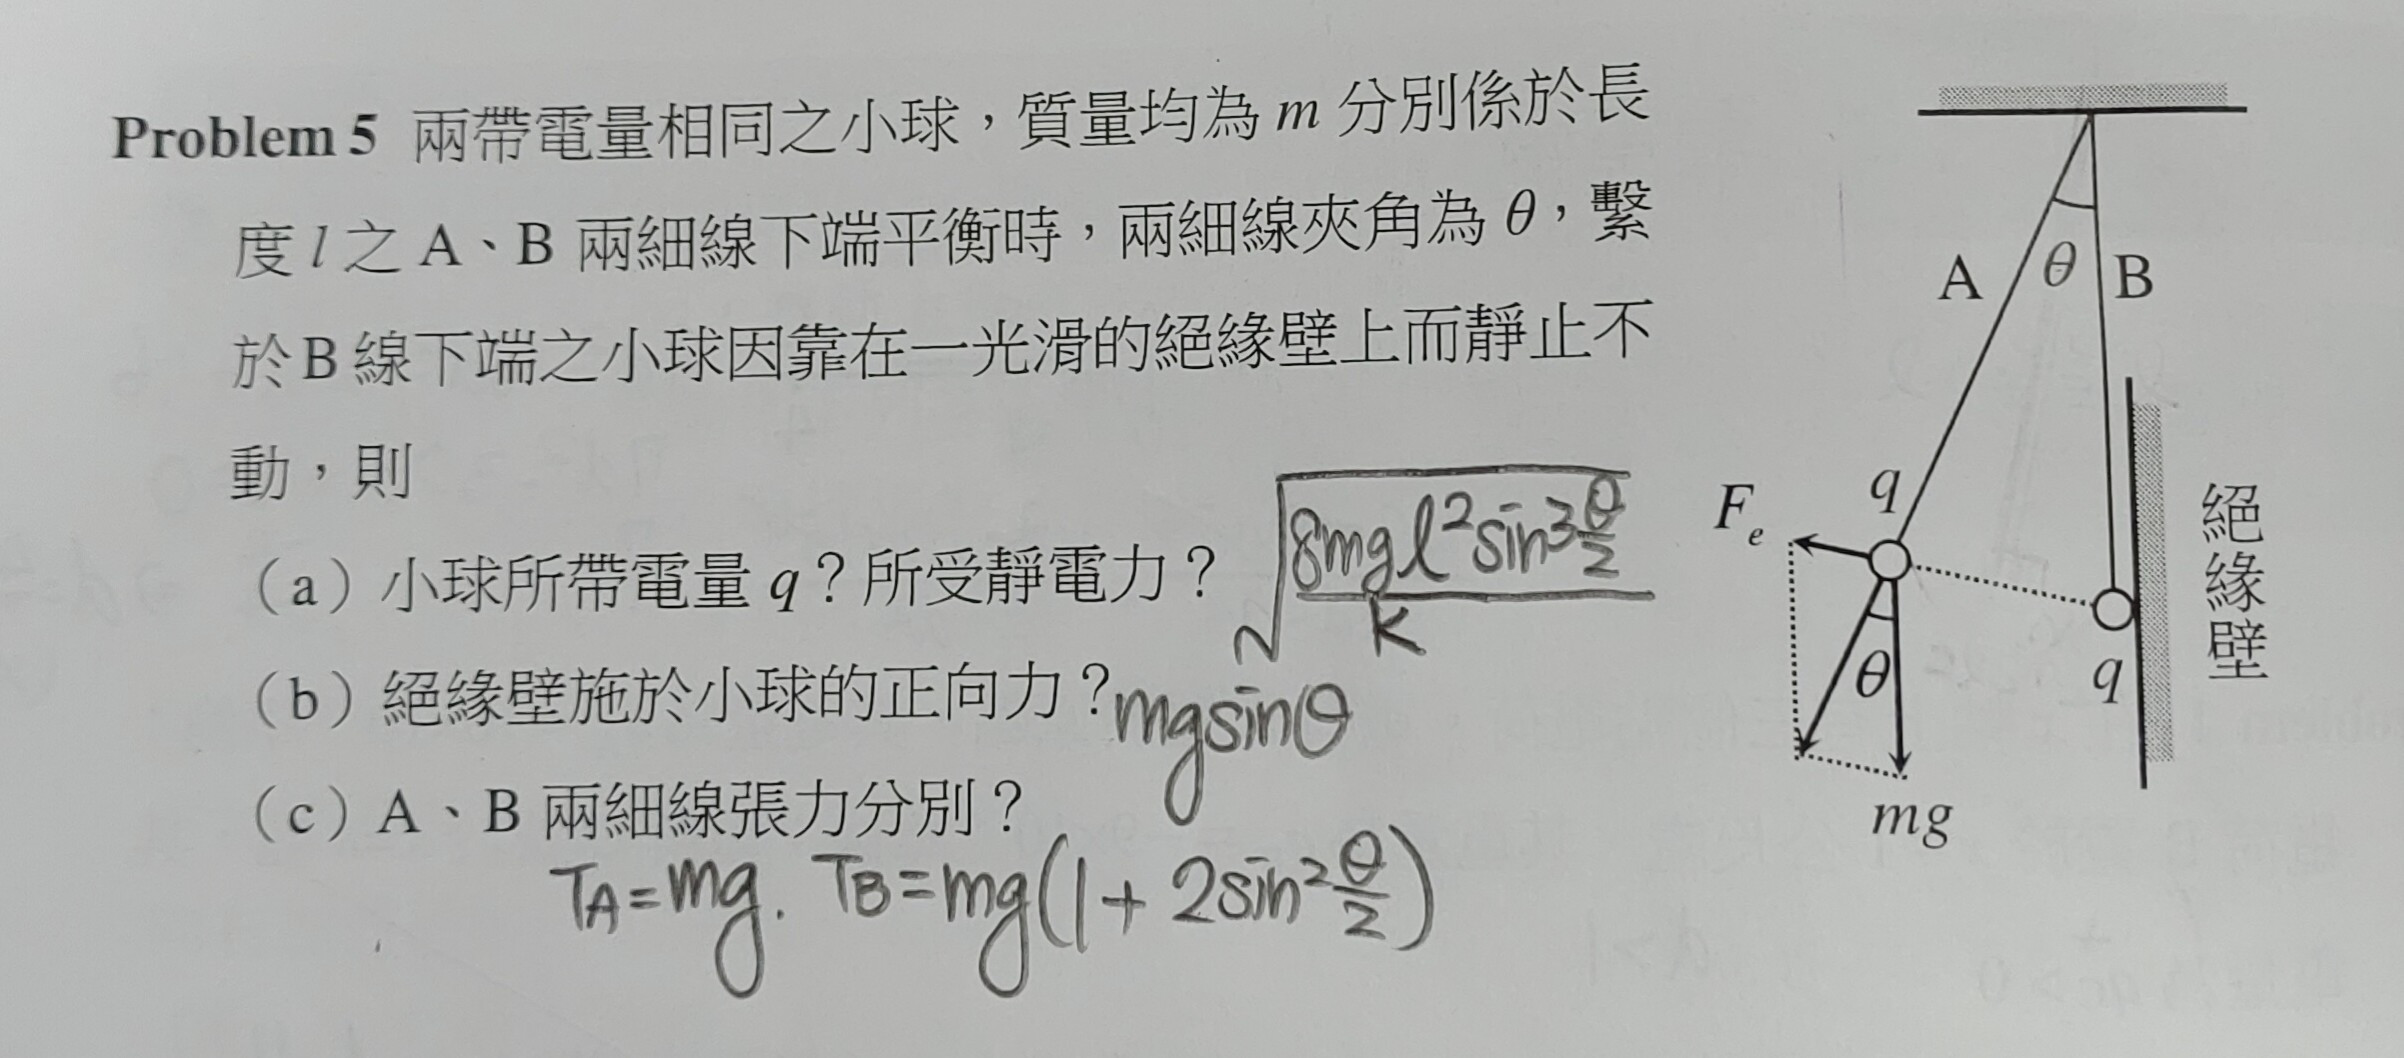 Problem 5 兩帶電量相同之小球，質量均為 m 分別係於長
度 l 之 A、B 兩細線下端平衡時，兩細線夾角為 θ，繫
於 B 線下端之小球因靠在一光滑的絕緣壁上而靜止不
動，則
（a）小球所帶電量 q？所受靜電力？ √(8mgl²sin³(θ/2)/k)
（b）絕緣壁施於小球的正向力？mgsinθ
（c）A、B 兩細線張力分別？
TA=mg. TB=mg(1+2sin²θ/2)
A
θ
B
q
Fe
θ
q
mg
絕緣壁